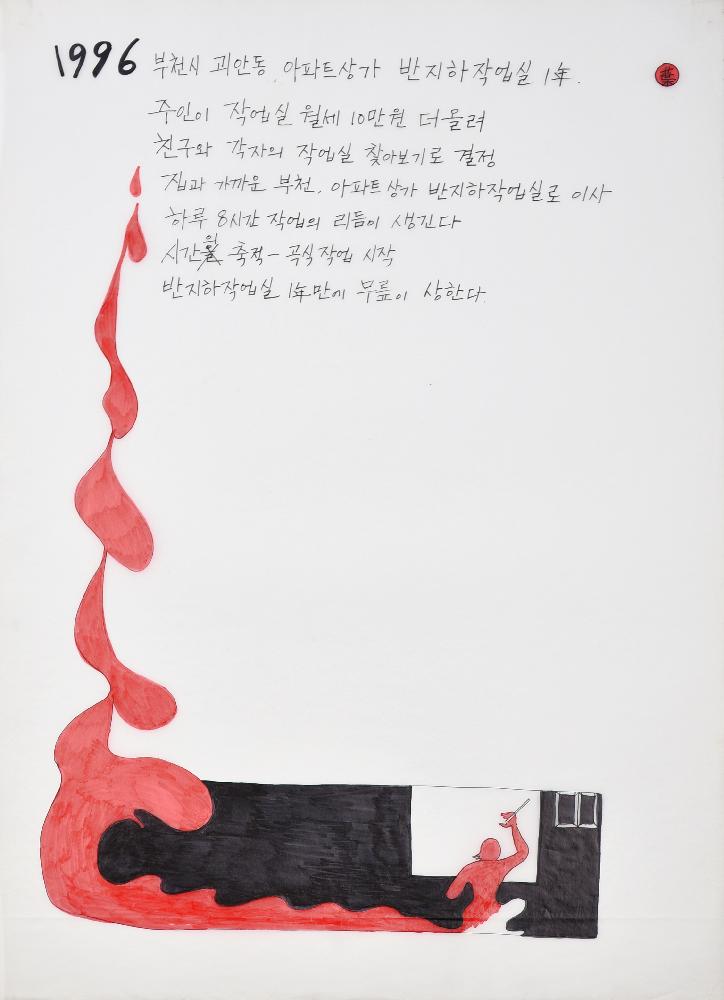 1996 부천시 괴안동 아파트상가 반지하작업실 1年.
주인이 작업실 월세 10만원 더올려
친구와 각자의 작업실 찾아보기로 결정
집과 가까운 부천. 아파트상가 반지하작업실로 이사
하루 8시간 작업의 리듬이 생긴다
시간의 축적 - 곡식작업 시작
반지하작업실 1年만에 무릎이 상한다.